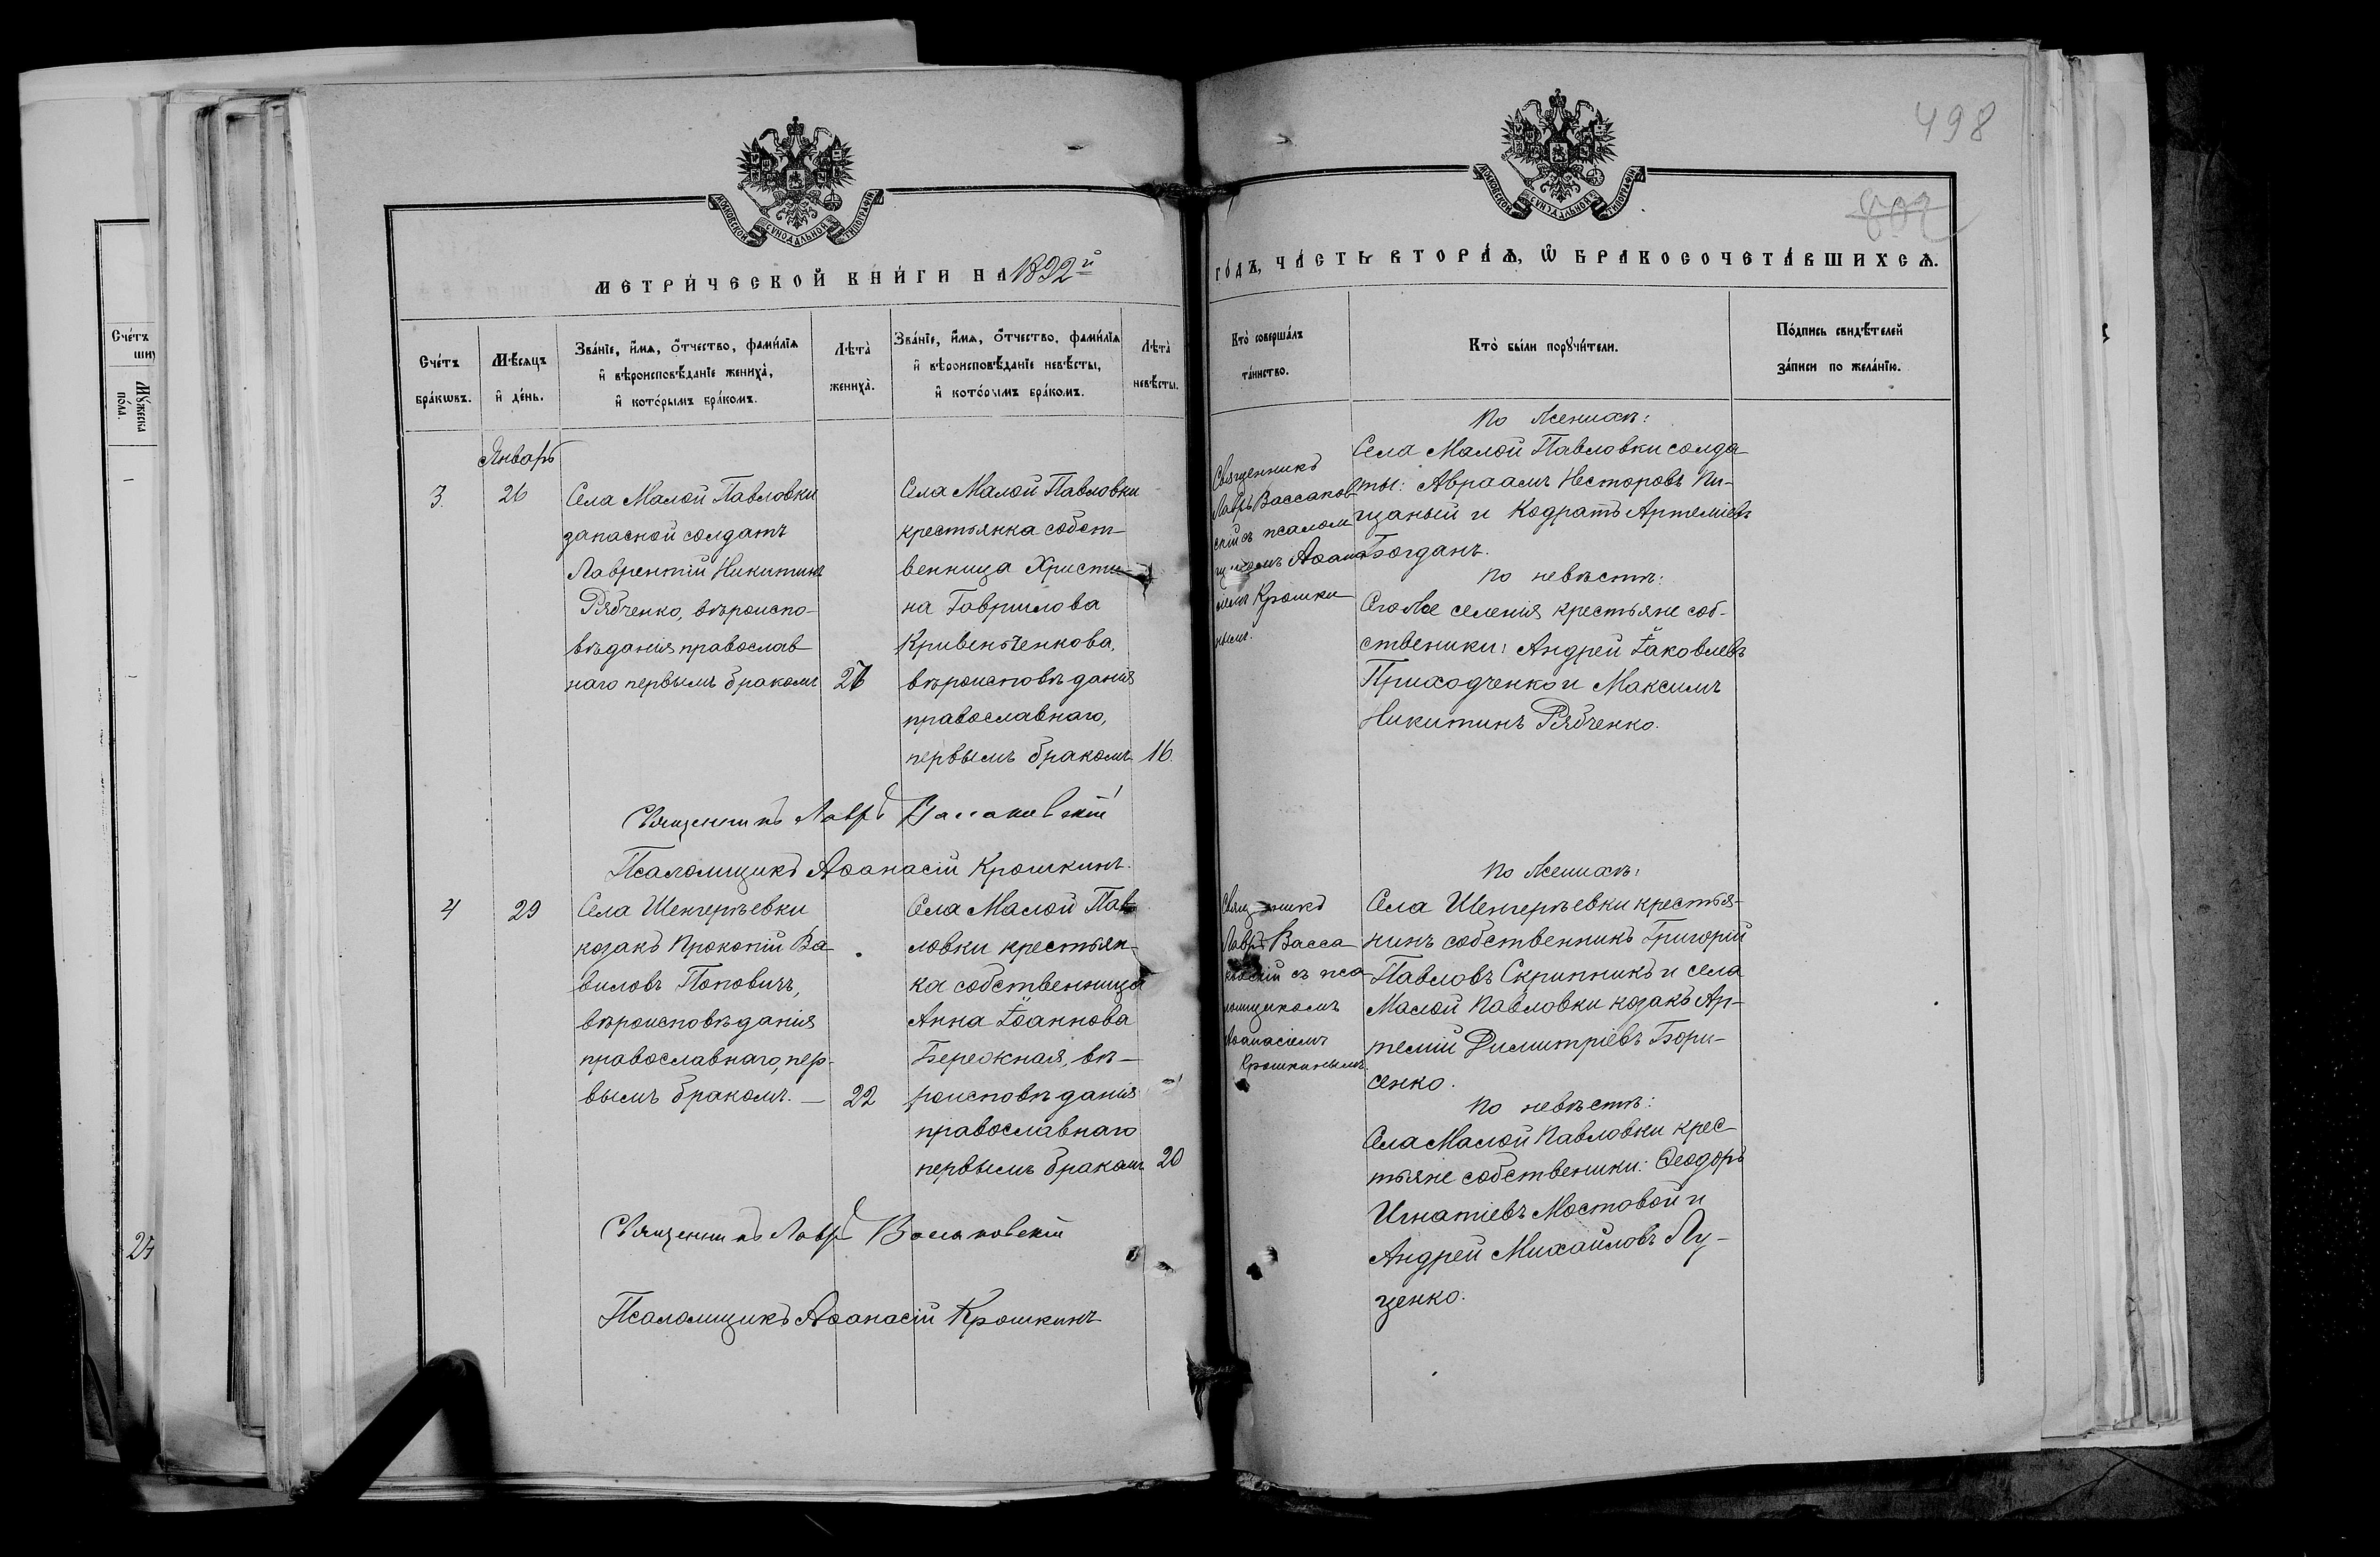 498
802
МОСКОВСКОЙ СѴНОДАЛЬНОЙ ТИПОГРАФІИ
МОСКОВСКОЙ СѴНОДАЛЬНОЙ ТИПОГРАФІИ
МЕТРИ́ЧЕСКОЙ КНИ́ГИ НА 1892й
ГО́ДЪ, ЧА́СТЬ ВТОРА́Ѧ, Ѡ БРАКОСОЧЕТА́ВШИХСѦ.
Сче́тъ бра́кѡвъ.
Мѣ́сѧцъ и҆ де́нь.
Зва́нїе, и҆́мѧ, ѻ҆́тчество, фами́лїѧ
и҆ вѣроисповѣ́данїе жениха̀,
и҆ кото́рымъ бра́комъ.
Лѣта̀ жениха̀.
Зва́нїе, и҆́мѧ, ѻ҆́тчество, фами́лїѧ
и҆ вѣроисповѣ́данїе невѣ́сты,
и҆ кото́рымъ бра́комъ.
Лѣта̀ невѣ́сты.
Кто̀ соверша́лъ
та́инство.
Кто̀ бы́ли порꙋчи́тели.
По́дпись свидѣ́телей
за́писи по жела́нїю.
Сче́тъ
Мꙋ́жеска по́ла.
24
Январь
3.
26
Села Малой Павловки
запасной солдатъ
Лаврентій Никитинъ
Рябченко, вѣроиспо-
вѣданія православ
наго первымъ бракомъ
Села Малой Павловки
крестьянка собст-
венница Христи-
на Гаврилова
Кривенченкова,
вѣроисповѣданія
православнаго,
первымъ бракомъ
16.
Священникъ
Лавръ Вассаков
скій съ псалом
щикомъ Аѳана
Крошки
нымъ.
По женихѣ:
Села Малой Павловки солда-
ты: Авраамъ Несторовъ Пи-
щаный и Кодратъ Артеміевъ
Богданъ.
По невѣстѣ:
Того же селенія крестьяне соб-
ственики: Андрей Іаковлевъ
Приходченко и Максимъ
Никитинъ Рябченко.
Священникъ Лавръ Вассаковскій
Псаломщикъ Аѳанасій Крошкинъ.
4
29
Села Шенгерѣевки
козакъ Прокопій Ва
виловъ Поповичъ,
вѣроисповѣданія
православнаго, пер-
вымъ бракомъ. —
22
Села Малой Пав
ловки крестьян-
ка собственница
Анна Іоаннова
Бережная, вѣ-
роисповѣданія
православнаго
первымъ бракомъ
20
Священникъ
Лавръ Васса
ковскій съ пса
ломщикомъ
Аѳанасіемъ
Крошкинымъ.
По женихѣ:
Села Шенгерѣевки крестья-
нинъ собственникъ Григорій
Павловъ Скрипникъ и села
Малой Павловки козакъ Ар-
темій Димитріевъ Бори-
сенко.
По невѣстѣ:
Села Малой Павловки крес-
тьяне собственики: Ѳеодоръ
Игнатіевъ Мостовой и
Андрей Михайловъ Лу-
ценко.
Священникъ Лавръ Вассаковскій
Псаломщикъ Аѳанасій Крошкинъ